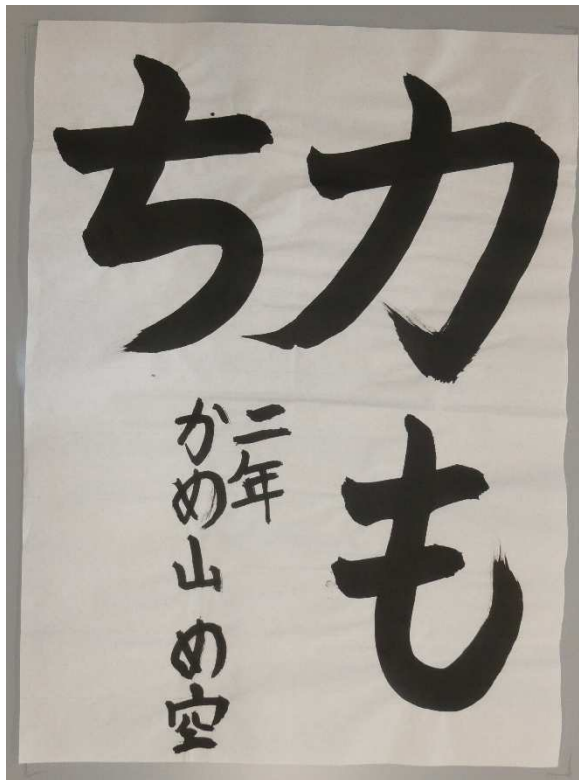 力も
ち
二年
かめ山 め空